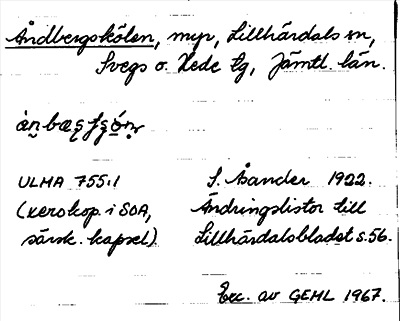 Åndbergskölen, myr, Lillhärdals sn,
Svegs o. Hede tg, Jämtl. län.
ULMA 755:1 S. Åsander 1922.
(xerokop. i SOA, Ändringslistor till
särsk. kapsel) Lillhärdalsbladet s. 56.
Exc. av GEHL 1967.